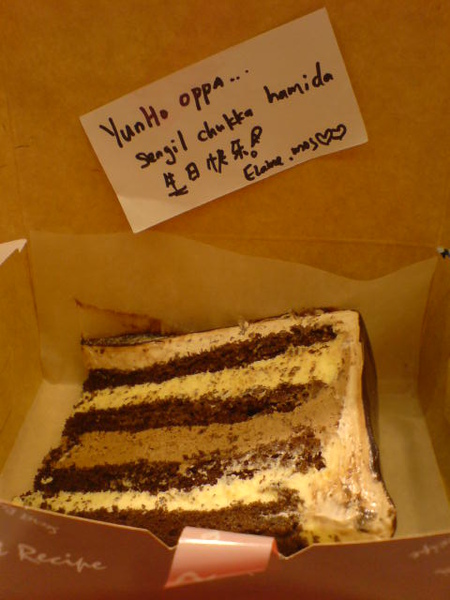 YunHo oppa...
sengil chukka hamida
生日快乐!
Elaine.mos♡♡
Recipe